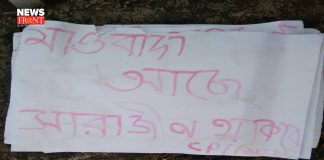 NEWS
FRONT
মাওবাদী
আছে
সারাজীবন থাকবে
CPI